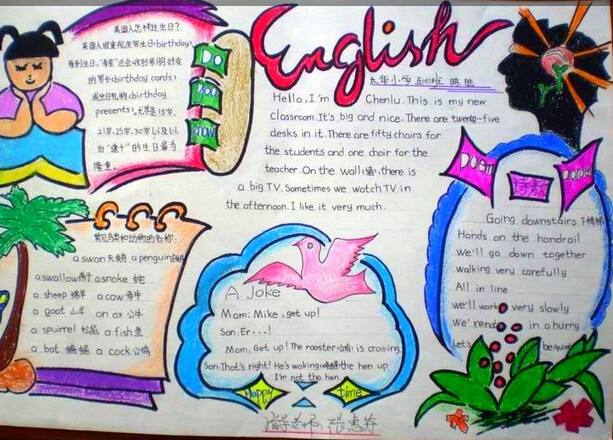 English
美国人怎样过生日?
美国人很重视庆祝生日(birthday),
的贺卡(birthday cards)
或生日礼物(birthday
presents),尤其是18岁、
21岁,25岁,30岁以及以
后"逢十"的生日最为
隆重。
DO
You
know
Hello, I'm Chenlu. This is my new
classroom. It's big and nice. There are twenty-five
desks in it. There are fifty chairs for
the students and one chair for the
teacher. On the wall(墙), there is
a big TV. Sometimes we watch TV in
the afternoon. I like it very much.
常见鸟类和动物的名称:
a swan 天鹅 a penguin企鹅
a swallow燕子 a snake 蛇
a sheep 绵羊 a cow 母牛
a goat 山羊 an ox 公牛
a squirrel 松鼠 a fish 鱼
a bat 蝙蝠 a cock 公鸡
A Joke
Mom: Mike, get up!
Son: Er...!
Mom: Get up! The rooster(公鸡) is crowing.
Son: That's right! He's waking(唤醒) the hen up.
I'm not the hen.
Happy time
指导老师:
Going downstairs 下楼梯
Hands on the handrail
We'll go down together
walking very carefully
All in line
we'll very slowly
We' in a hurry
Let's be quiet